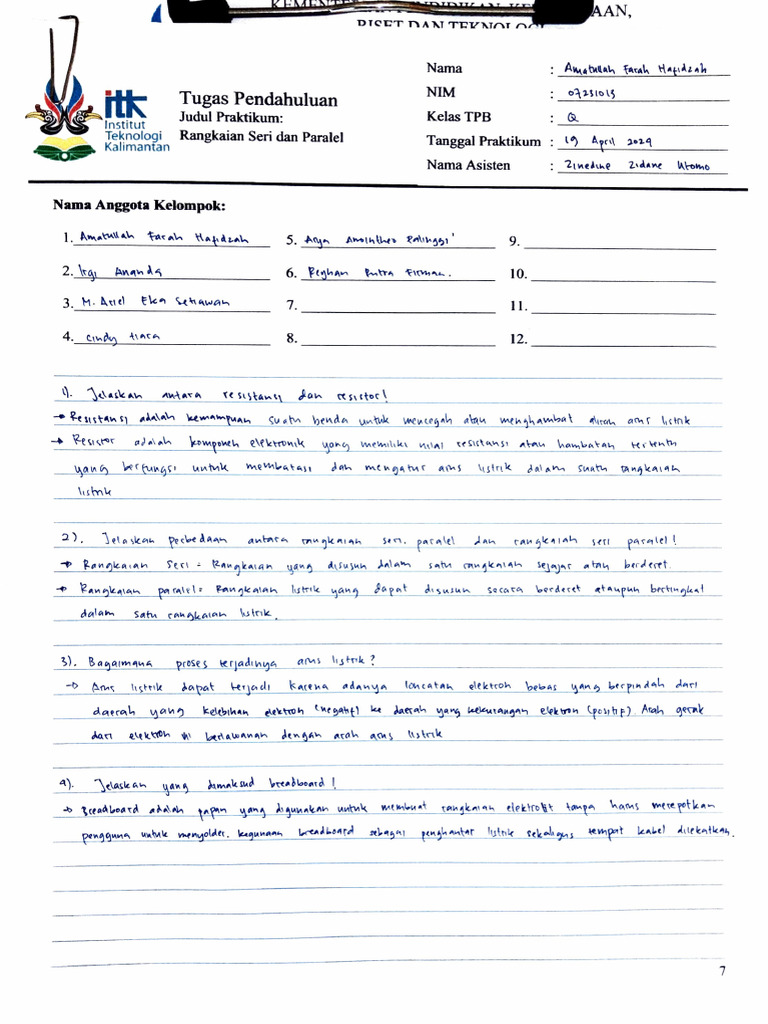 RISET DAN TEKNOLOGI
itk
Institut
Teknologi
Kalimantan
Tugas Pendahuluan
Judul Praktikum:
Rangkaian Seri dan Paralel
Nama : Amatullah Farah Hafidzah
NIM : 07231013
Kelas TPB : Q
Tanggal Praktikum : 19 April 2024
Nama Asisten : Zinedine Zidane Utomo
Nama Anggota Kelompok:
1. Amatullah Farah Hafidzah 5. Arya 9.
2. Irgi Ananda 6. Reghan Putra Firman. 10.
3. M. Ariel Eka Setiawan 7. 11.
4. Cindy tiara 8. 12.
1). Jelaskan antara resistansi dan resistor!
→ Resistansi adalah kemampuan suatu benda untuk mencegah atau menghambat aliran arus listrik
→ Resistor adalah komponen elektronik yang memiliki nilai resistansi atau hambatan tertentu
yang berfungsi untuk membatasi dan mengatur arus listrik dalam suatu rangkaian
listrik
2). Jelaskan perbedaan antara rangkaian seri, paralel dan rangkaian seri paralel!
→ Rangkaian Seri = Rangkaian yang disusun dalam satu rangkaian sejajar atau berderet
→ Rangkaian paralel = Rangkaian listrik yang dapat disusun secara berderet ataupun bertingkat
dalam satu rangkaian listrik.
3). Bagaimana proses terjadinya arus listrik?
→ Arus listrik dapat terjadi karena adanya loncatan elektron bebas yang berpindah dari
daerah yang kelebihan elektron (negatif) ke daerah yang kekurangan elektron (positif). Arah gerak
dari elektron ni berlawanan dengan arah arus listrik
4). Jelaskan yang dimaksud breadboard!
→ Breadboard adalah papan yang digunakan untuk membuat rangkaian tanpa harus merepotkan
pengguna untuk menyolder. kegunaan breadboard sebagai penghantar listrik sekaligus tempat kabel dilekatkan.
7